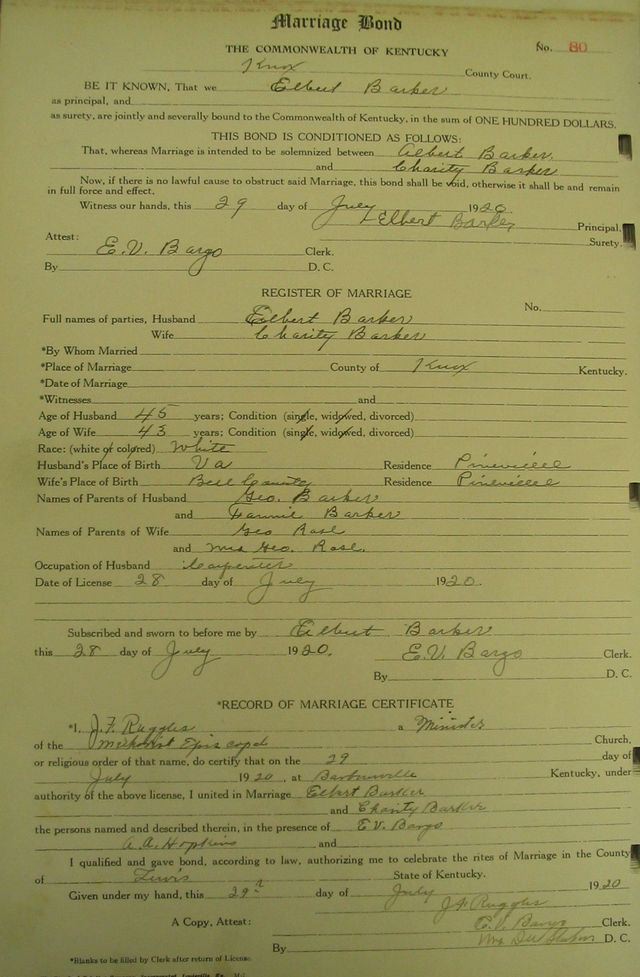 Marriage Bond
THE COMMONWEALTH OF KENTUCKY No. 80
Knox County Court.
BE IT KNOWN, That we Elbert Barker
as principal, and
as surety, are jointly and severally bound to the Commonwealth of Kentucky, in the sum of ONE HUNDRED DOLLARS.
THIS BOND IS CONDITIONED AS FOLLOWS:
That, whereas Marriage is intended to be solemnized between Elbert Barker.
and Charity Barker
Now, if there is no lawful cause to obstruct said Marriage, this bond shall be void, otherwise it shall be and remain
in full force and effect.
Witness our hands, this 29 day of July 1920.
Elbert Barker Principal,
Surety.
Attest:
E.V. Bargo Clerk.
By D. C.
REGISTER OF MARRIAGE
No.
Full names of parties, Husband Elbert Barker
Wife Charity Barker
*By Whom Married
*Place of Marriage County of Knox Kentucky.
*Date of Marriage
*Witnesses and
Age of Husband 45 years; Condition (single, widowed, divorced)
Age of Wife 43 years; Condition (single, widowed, divorced)
Race: (white or colored) White
Husband's Place of Birth Va Residence Pineville
Wife's Place of Birth Bell County Residence Pineville
Names of Parents of Husband Geo. Barker
and Fannie Barker
Names of Parents of Wife Geo Rose
and Mrs Geo. Rose.
Occupation of Husband Carpenter
Date of License 28 day of July 1920.
Subscribed and sworn to before me by Elbert Barker
this 28 day of July 1920. E.V. Bargo Clerk.
By D. C.
*RECORD OF MARRIAGE CERTIFICATE
*I, J. F. Ruggles a Minister
of the Methodist Episcopal Church,
or religious order of that name, do certify that on the 29 day of
July 1920, at Barbourville Kentucky, under
authority of the above license, I united in Marriage Elbert Barker
and Charity Barker
the persons named and described therein, in the presence of E V. Bargo
A. A. Hopkins and
I qualified and gave bond, according to law, authorizing me to celebrate the rites of Marriage in the County
of Lewis State of Kentucky.
Given under my hand, this 29 day of July 1920
J F Ruggles
A Copy, Attest: E. V. Bargo Clerk.
By D. C.
*Blanks to be filled by Clerk after return of License.